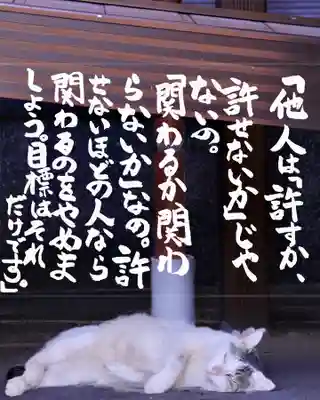 「他人は「許すか、
許せないか」じゃ
ないの。
「関わるか、関わ
らないか」なの。許
せないほどの人なら
関わるのをやめま
しょう。目標はそれ
だけです。」